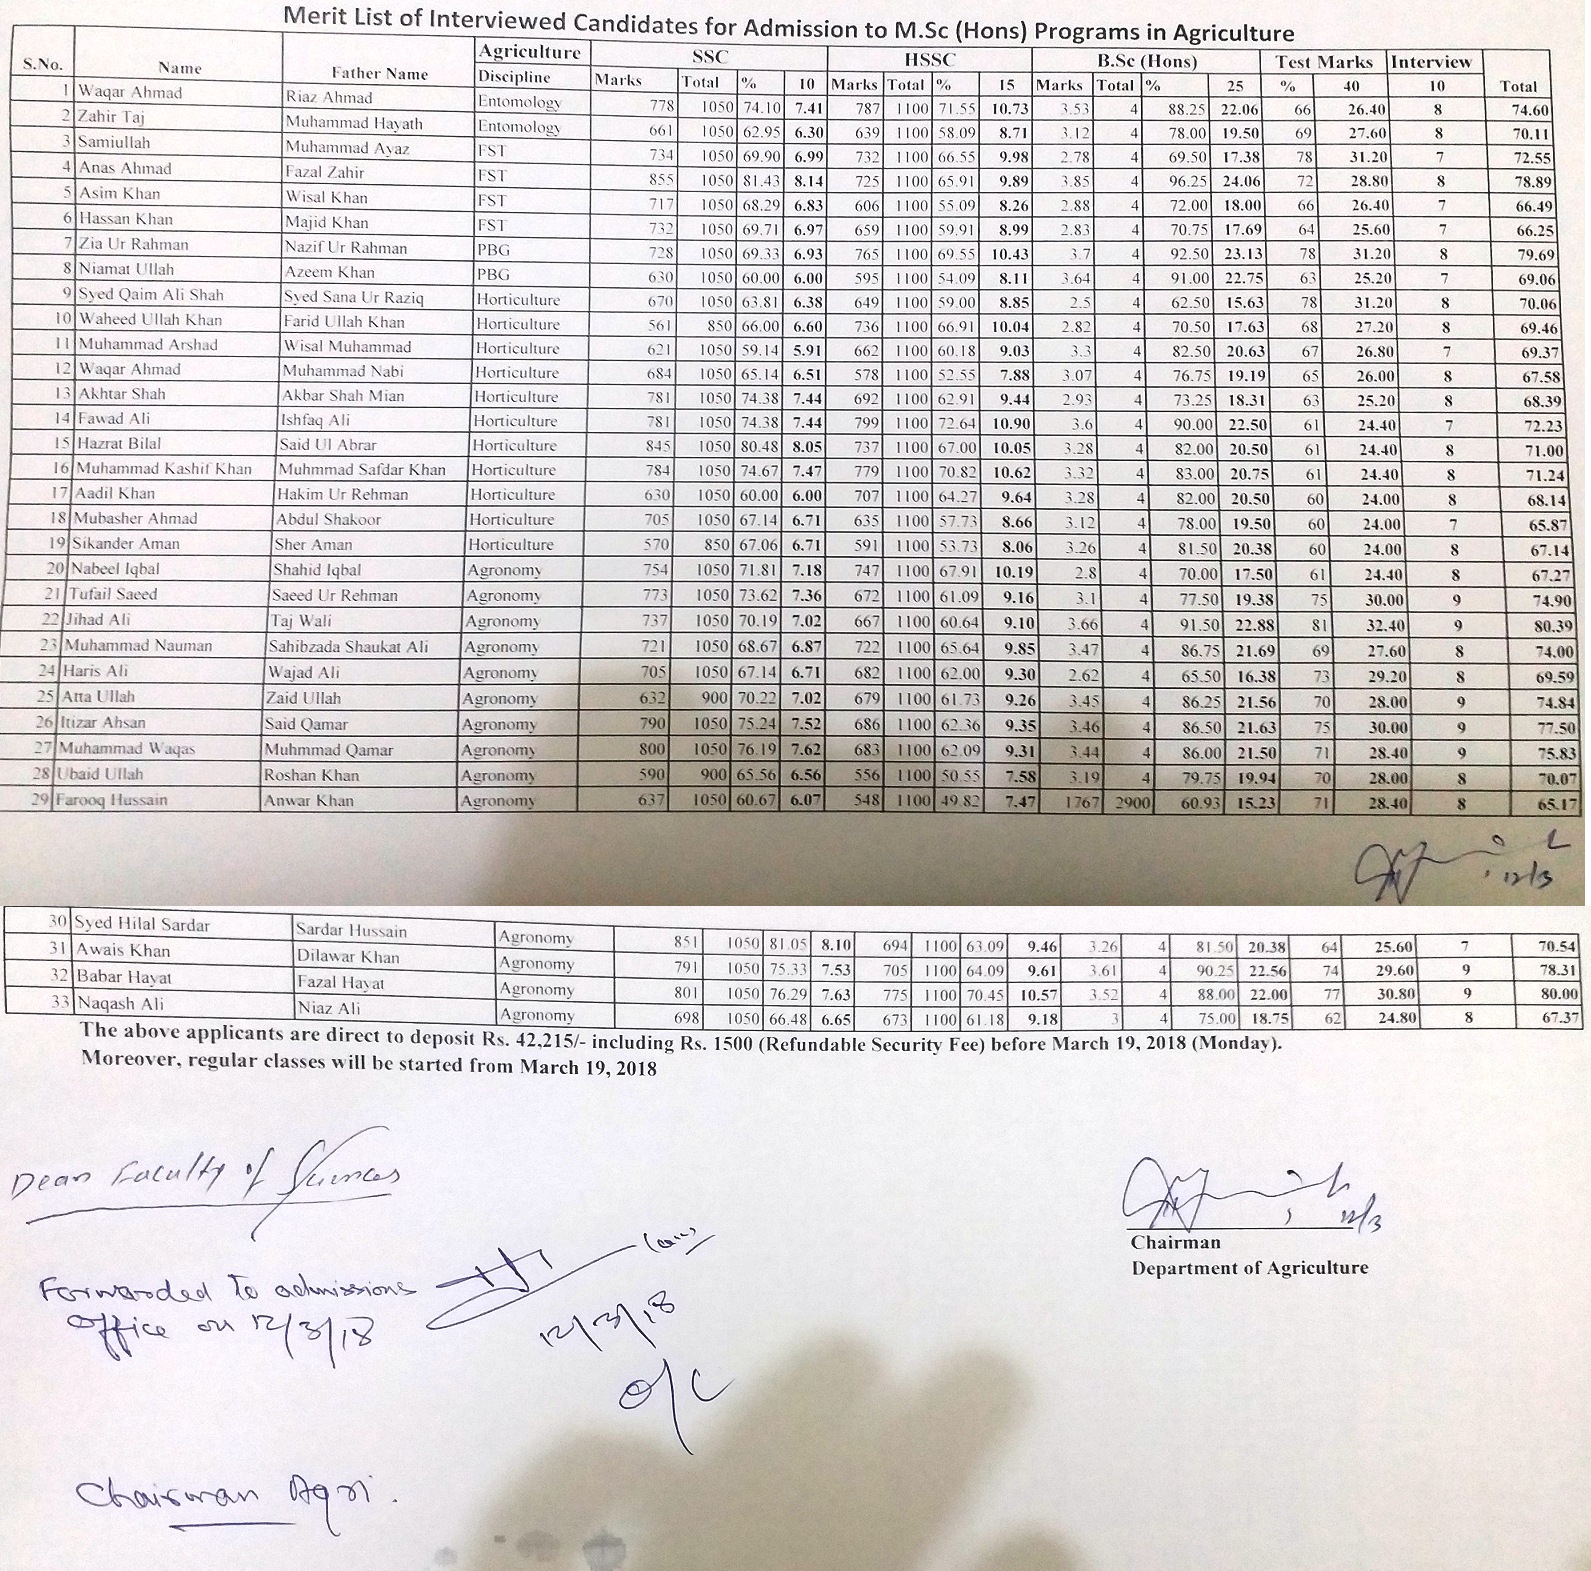 Merit List of Interviewed Candidates for Admission to M.Sc (Hons) Programs in Agriculture
S.No. Name Father Name Agriculture Discipline SSC HSSC B.Sc (Hons) Test Marks Interview Total
Marks Total % 10 Marks Total % 15 Marks Total % 25 % 40 10
1 Waqar Ahmad Riaz Ahmad Entomology 778 1050 74.10 7.41 787 1100 71.55 10.73 3.53 4 88.25 22.06 66 26.40 8 74.60
2 Zahir Taj Muhammad Hayath Entomology 661 1050 62.95 6.30 639 1100 58.09 8.71 3.12 4 78.00 19.50 69 27.60 8 70.11
3 Samiullah Muhammad Ayaz FST 734 1050 69.90 6.99 732 1100 66.55 9.98 2.78 4 69.50 17.38 78 31.20 7 72.55
4 Anas Ahmad Fazal Zahir FST 855 1050 81.43 8.14 725 1100 65.91 9.89 3.85 4 96.25 24.06 72 28.80 8 78.89
5 Asim Khan Wisal Khan FST 717 1050 68.29 6.83 606 1100 55.09 8.26 2.88 4 72.00 18.00 66 26.40 7 66.49
6 Hassan Khan Majid Khan FST 732 1050 69.71 6.97 659 1100 59.91 8.99 2.83 4 70.75 17.69 64 25.60 7 66.25
7 Zia Ur Rahman Nazif Ur Rahman PBG 728 1050 69.33 6.93 765 1100 69.55 10.43 3.7 4 92.50 23.13 78 31.20 8 79.69
8 Niamat Ullah Azeem Khan PBG 630 1050 60.00 6.00 595 1100 54.09 8.11 3.64 4 91.00 22.75 63 25.20 7 69.06
9 Syed Qaim Ali Shah Syed Sana Ur Raziq Horticulture 670 1050 63.81 6.38 649 1100 59.00 8.85 2.5 4 62.50 15.63 78 31.20 8 70.06
10 Waheed Ullah Khan Farid Ullah Khan Horticulture 561 850 66.00 6.60 736 1100 66.91 10.04 2.82 4 70.50 17.63 68 27.20 8 69.46
11 Muhammad Arshad Wisal Muhammad Horticulture 621 1050 59.14 5.91 662 1100 60.18 9.03 3.3 4 82.50 20.63 67 26.80 7 69.37
12 Waqar Ahmad Muhammad Nabi Horticulture 684 1050 65.14 6.51 578 1100 52.55 7.88 3.07 4 76.75 19.19 65 26.00 8 67.58
13 Akhtar Shah Akbar Shah Mian Horticulture 781 1050 74.38 7.44 692 1100 62.91 9.44 2.93 4 73.25 18.31 63 25.20 8 68.39
14 Fawad Ali Ishfaq Ali Horticulture 781 1050 74.38 7.44 799 1100 72.64 10.90 3.6 4 90.00 22.50 61 24.40 7 72.23
15 Hazrat Bilal Said Ul Abrar Horticulture 845 1050 80.48 8.05 737 1100 67.00 10.05 3.28 4 82.00 20.50 61 24.40 8 71.00
16 Muhammad Kashif Khan Muhmmad Safdar Khan Horticulture 784 1050 74.67 7.47 779 1100 70.82 10.62 3.32 4 83.00 20.75 61 24.40 8 71.24
17 Aadil Khan Hakim Ur Rehman Horticulture 630 1050 60.00 6.00 707 1100 64.27 9.64 3.28 4 82.00 20.50 60 24.00 8 68.14
18 Mubasher Ahmad Abdul Shakoor Horticulture 705 1050 67.14 6.71 635 1100 57.73 8.66 3.12 4 78.00 19.50 60 24.00 7 65.87
19 Sikander Aman Sher Aman Horticulture 570 850 67.06 6.71 591 1100 53.73 8.06 3.26 4 81.50 20.38 60 24.00 8 67.14
20 Nabeel Iqbal Shahid Iqbal Agronomy 754 1050 71.81 7.18 747 1100 67.91 10.19 2.8 4 70.00 17.50 61 24.40 8 67.27
21 Tufail Saeed Saeed Ur Rehman Agronomy 773 1050 73.62 7.36 672 1100 61.09 9.16 3.1 4 77.50 19.38 75 30.00 9 74.90
22 Jihad Ali Taj Wali Agronomy 737 1050 70.19 7.02 667 1100 60.64 9.10 3.66 4 91.50 22.88 81 32.40 9 80.39
23 Muhammad Nauman Sahibzada Shaukat Ali Agronomy 721 1050 68.67 6.87 722 1100 65.64 9.85 3.47 4 86.75 21.69 69 27.60 8 74.00
24 Haris Ali Wajad Ali Agronomy 705 1050 67.14 6.71 682 1100 62.00 9.30 2.62 4 65.50 16.38 73 29.20 8 69.59
25 Atta Ullah Zaid Ullah Agronomy 632 900 70.22 7.02 679 1100 61.73 9.26 3.45 4 86.25 21.56 70 28.00 9 74.84
26 Itizar Ahsan Said Qamar Agronomy 790 1050 75.24 7.52 686 1100 62.36 9.35 3.46 4 86.50 21.63 75 30.00 9 77.50
27 Muhammad Waqas Muhmmad Qamar Agronomy 800 1050 76.19 7.62 683 1100 62.09 9.31 3.44 4 86.00 21.50 71 28.40 9 75.83
28 Ubaid Ullah Roshan Khan Agronomy 590 900 65.56 6.56 556 1100 50.55 7.58 3.19 4 79.75 19.94 70 28.00 8 70.07
29 Farooq Hussain Anwar Khan Agronomy 637 1050 60.67 6.07 548 1100 49.82 7.47 1767 2900 60.93 15.23 71 28.40 8 65.17
12/3
30 Syed Hilal Sardar Sardar Hussain Agronomy 851 1050 81.05 8.10 694 1100 63.09 9.46 3.26 4 81.50 20.38 64 25.60 7 70.54
31 Awais Khan Dilawar Khan Agronomy 791 1050 75.33 7.53 705 1100 64.09 9.61 3.61 4 90.25 22.56 74 29.60 9 78.31
32 Babar Hayat Fazal Hayat Agronomy 801 1050 76.29 7.63 775 1100 70.45 10.57 3.52 4 88.00 22.00 77 30.80 9 80.00
33 Naqash Ali Niaz Ali Agronomy 698 1050 66.48 6.65 673 1100 61.18 9.18 3 4 75.00 18.75 62 24.80 8 67.37
The above applicants are direct to deposit Rs. 42,215/- including Rs. 1500 (Refundable Security Fee) before March 19, 2018 (Monday).
Moreover, regular classes will be started from March 19, 2018
Dean Faculty of Sciences
12/3
Chairman
Department of Agriculture
Forwarded to admissions
office on 12/3/18
12/3/18
O/C
Chairman Agri.